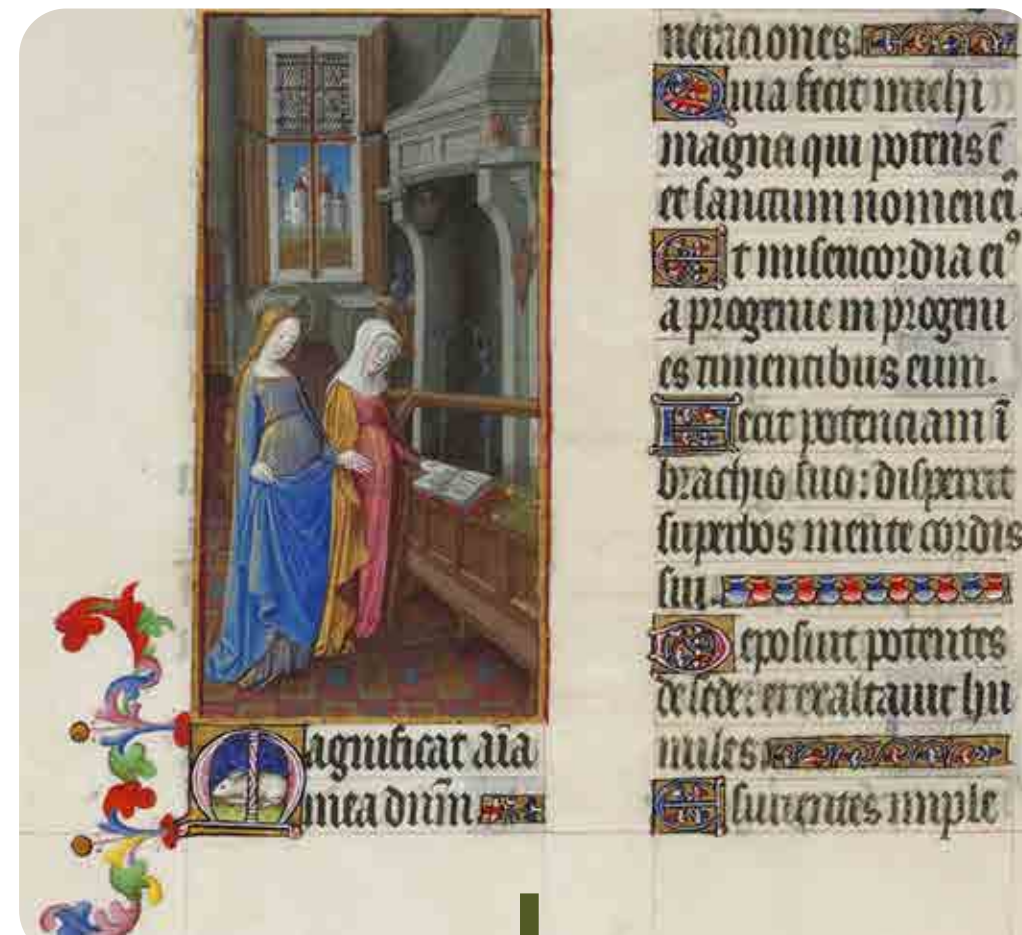 Magnificat aīa
mea dn̄m
neraciones.
Quia fecit michi
magna qui potens ē
et sanctum nomen ei.
Et misericordia ei⁹
a progenie in progeni
es timentibus eum.
Fecit potenciam ī
brachio suo: dispersit
superbos mente cordis
sui.
Deposuit potentes
de sede: et exaltauit hu
miles.
Esurientes imple